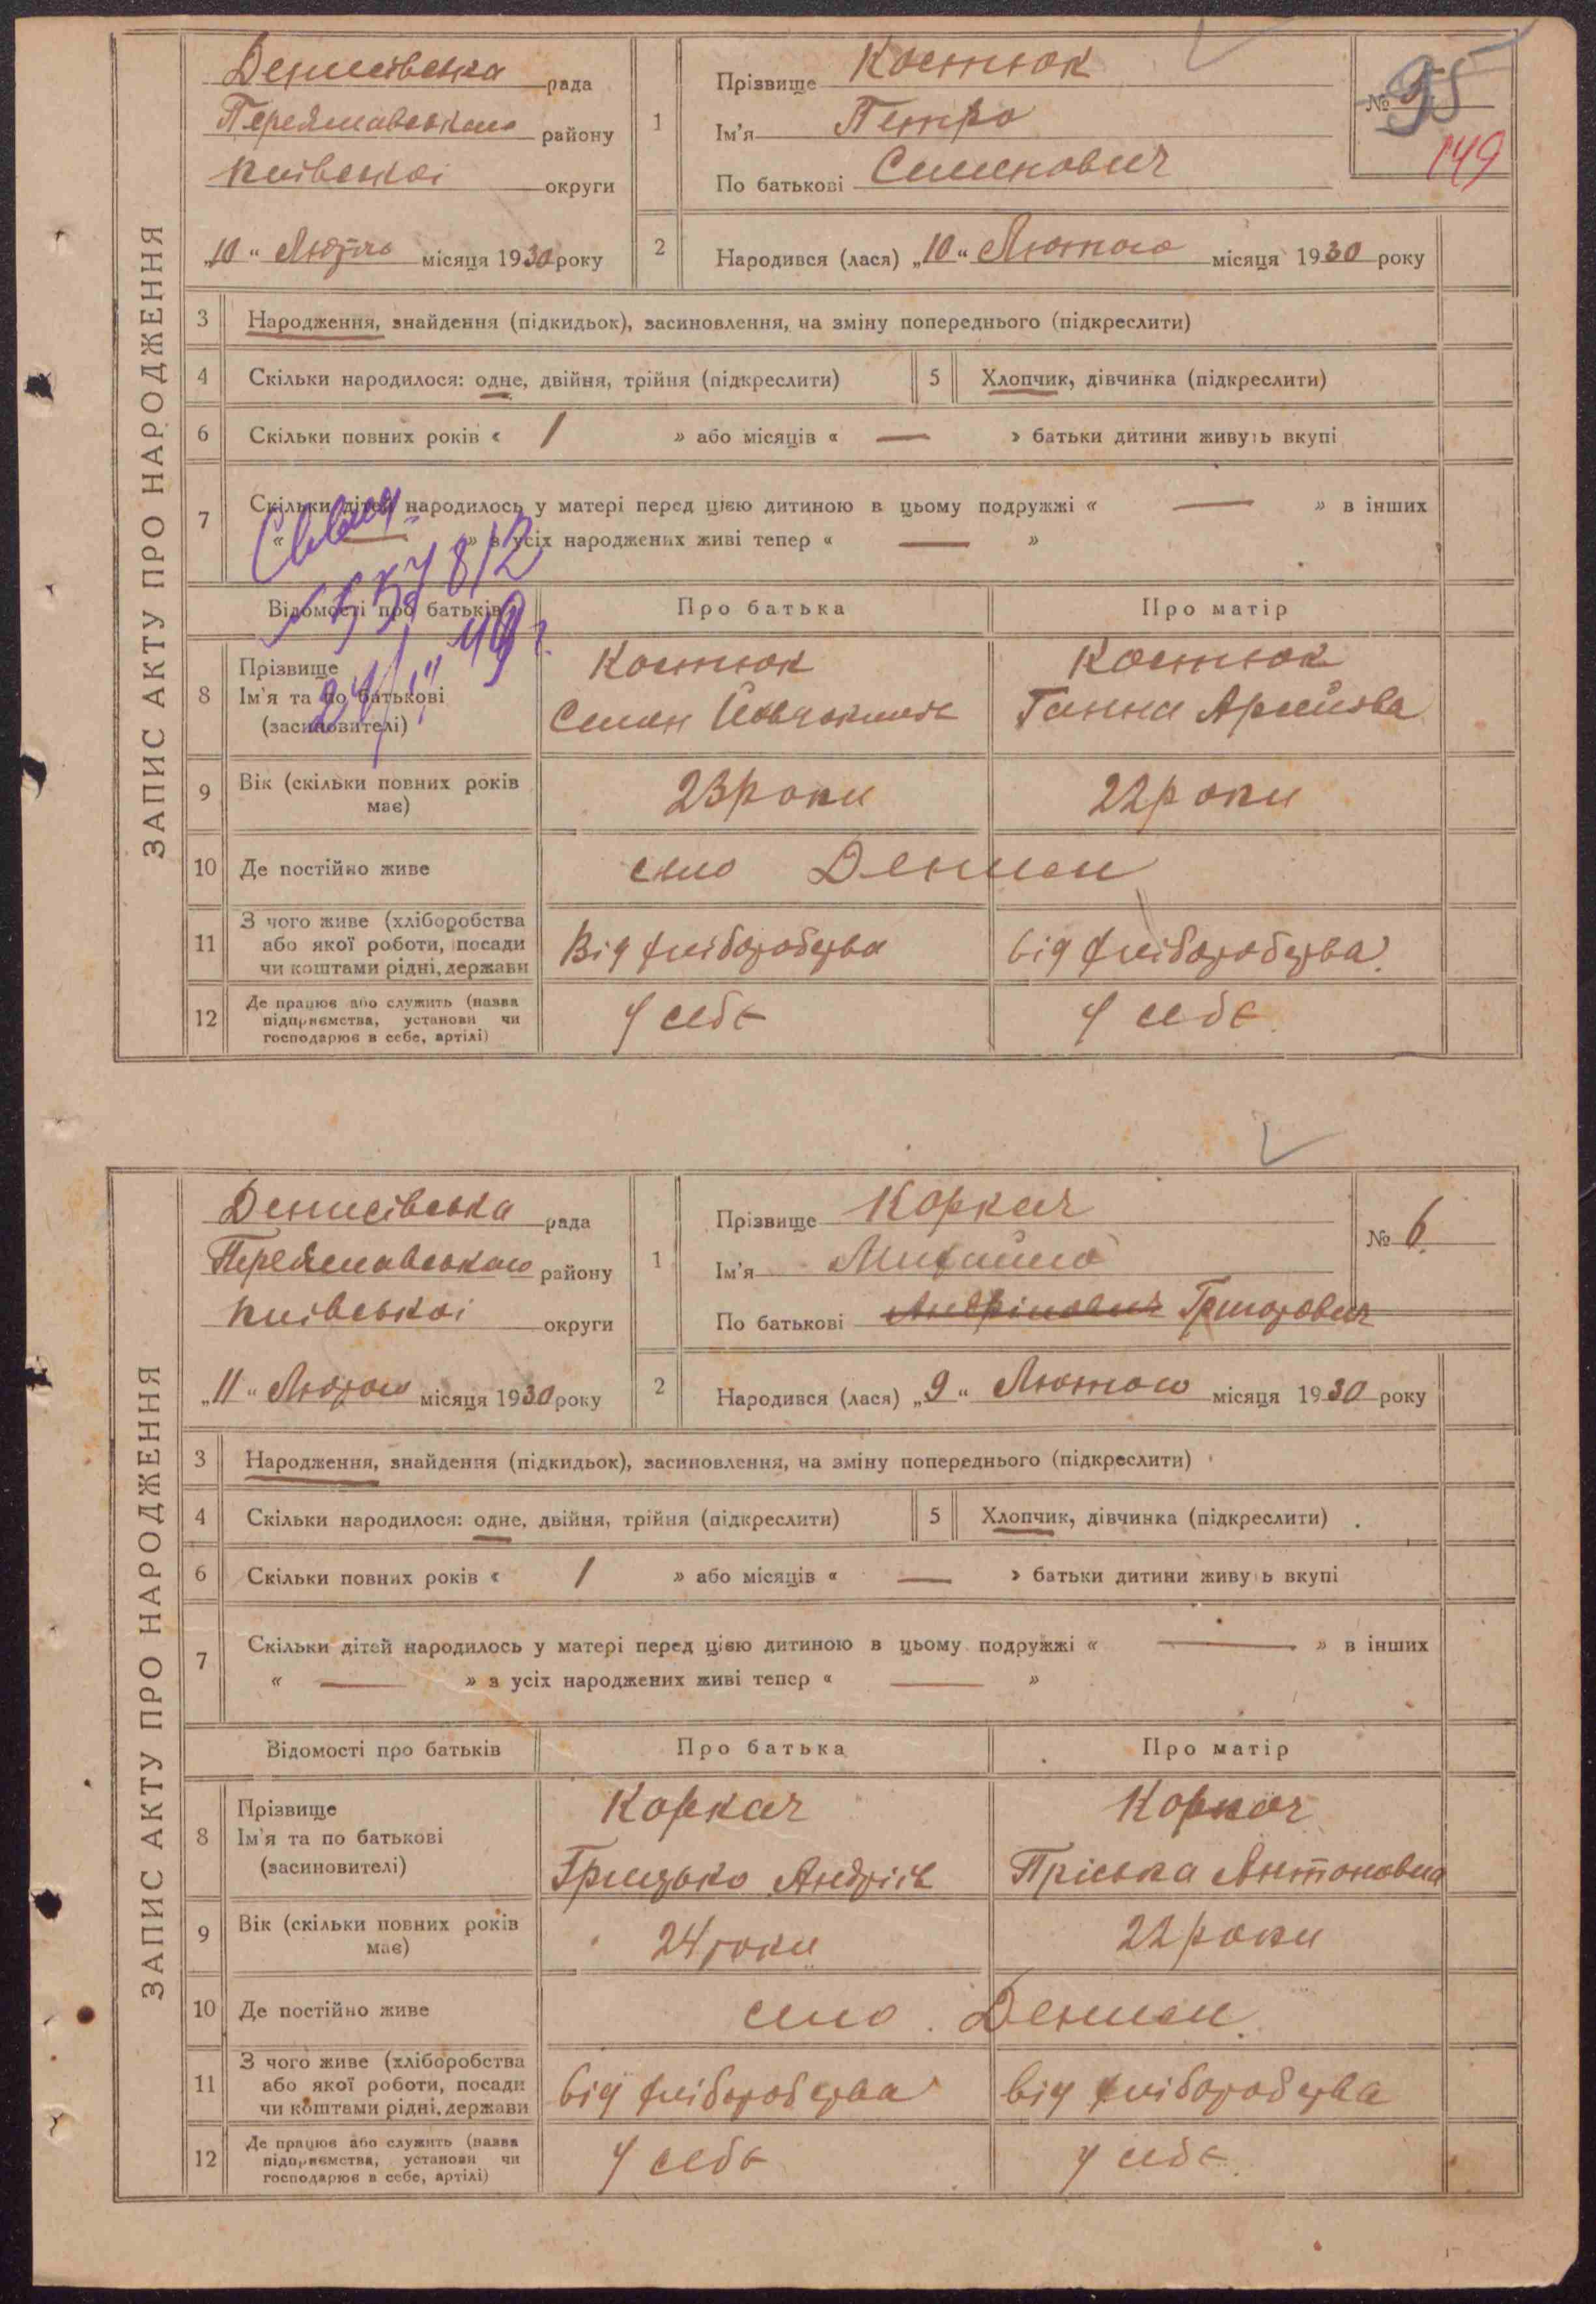 ЗАПИС АКТУ ПРО НАРОДЖЕННЯ
Денисівська рада
Переяславського району
Київської округи
„10“ Лютого місяця 1930 року
1
Прізвище Костюк
Ім'я Петро
По батькові Семенович
№ 5
95
149
2 Народився (лася) „10“ Лютого місяця 1930 року
3 Народження, знайдення (підкидьок), засиновлення, на зміну попереднього (підкреслити)
4 Скільки народилося: одне, двійня, трійня (підкреслити) 5 Хлопчик, дівчинка (підкреслити)
6 Скільки повних років « 1 » або місяців « — » батьки дитини живуть вкупі
7 Скільки дітей народилось у матері перед цією дитиною в цьому подружжі « — » в інших
« — » з усіх народжених живі тепер « — »
Відомості про батьків Про батька Про матір
8 Прізвище Костюк Костюк
Ім'я та по батькові Семен Ганна
(засиновителі)
9 Вік (скільки повних років має) 23 роки 22 роки
10 Де постійно живе село Дениси
11 З чого живе (хліборобства
або якої роботи, посади
чи коштами рідні, держави Від хліборобства від хліборобства
12 Де працює або служить (назва
підприємства, установи чи
господарює в себе, артілі) У себе У себе
ЗАПИС АКТУ ПРО НАРОДЖЕННЯ
Денисівська рада
Переяславського району
Київської округи
„11“ Лютого місяця 1930 року
1
Прізвище Коркач
Ім'я Михайло
По батькові Григорович
№ 6
2 Народився (лася) „9“ Лютого місяця 1930 року
3 Народження, знайдення (підкидьок), засиновлення, на зміну попереднього (підкреслити)
4 Скільки народилося: одне, двійня, трійня (підкреслити) 5 Хлопчик, дівчинка (підкреслити)
6 Скільки повних років « 1 » або місяців « — » батьки дитини живуть вкупі
7 Скільки дітей народилось у матері перед цією дитиною в цьому подружжі « — » в інших
« — » з усіх народжених живі тепер « — »
Відомості про батьків Про батька Про матір
8 Прізвище Коркач Коркач
Ім'я та по батькові Грицько Андріїв Пріська Антоновна
(засиновителі)
9 Вік (скільки повних років має) 24 роки 22 роки
10 Де постійно живе село Дениси
11 З чого живе (хліборобства
або якої роботи, посади
чи коштами рідні, держави від хліборобства від хліборобства
12 Де працює або служить (назва
підприємства, установи чи
господарює в себе, артілі) У себе у себе